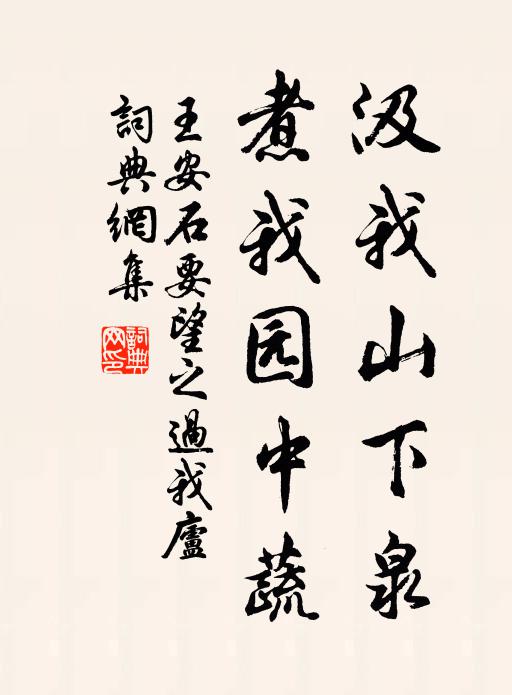 汲我山下泉
煮我园中蔬
王安石要望之過我廬
詞典網集
詞典網印